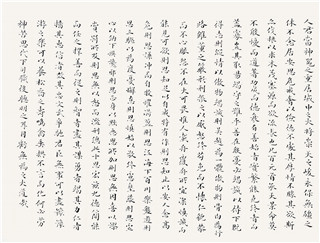 人君當神器之重居域中之大將崇極天之峻永保無疆之
休不念居安思危戒奢以儉德不處其厚情不勝其欲斯
亦伐根以求木茂塞源而欲流長也凡百元首承天景命莫
不殷憂而道著功成而德衰有善始者實繁能克終者
蓋寡豈其取之易守之難乎蓋在殷憂必竭誠以待下既
得志則縱情以傲物竭誠則吳越為一體傲物則骨肉為行
路雖董之以嚴刑振之以威怒終苟免而不懷仁貌恭
而不心服怨不在大可畏惟人載舟覆舟所宜深慎誠能
見可欲則思知足以自戒將有作則思知止以安人念高
危則思謙沖而自牧懼滿溢則思江海下百川樂盤遊則
思三驅以為度憂懈怠則思慎始而敬終慮壅蔽則思虛
心以納下懼讒邪則思正身以黜惡恩所加則思無因喜以謬
賞罰所及則思無以怒而濫刑總此十思宏茲九德簡能
而任之擇善而從之則智者盡其謀勇者竭其力仁者
播其惠信者效其忠文武爭馳君臣無事可以盡豫
遊之樂可以養松喬之壽鳴琴垂拱不言而化何必勞
神苦思代下司職役聰明之耳目虧無為之大道哉